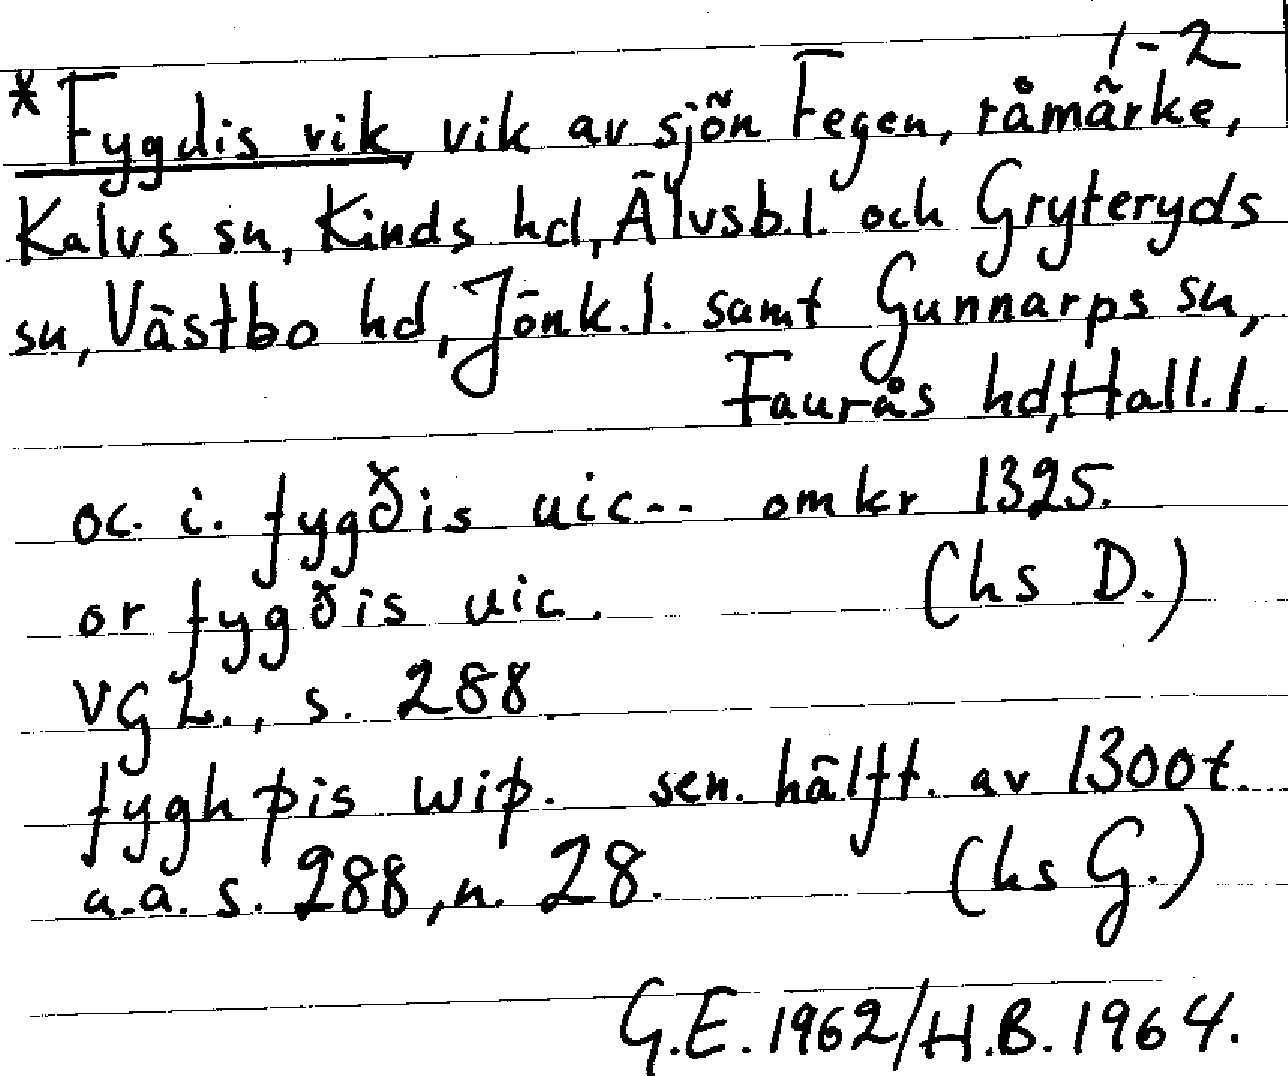 1-2
* Fygdis vik vik av sjön Fegen, råmärke,
Kalvs sn, Kinds hd, Älvsb.l. och Gryteryds
sn, Västbo hd, Jönk.l. samt Gunnarps sn,
Faurås hd, Hall.l.
oc. i. fygðis uic-- omkr 1325.
or fygðis uic. (hs D.)
VGL., s. 288
fyghþis wiþ. sen. hälft. av 1300t.
a.a. s. 288, n. 28. (hs G.)
G.E. 1962/H.B. 1964.